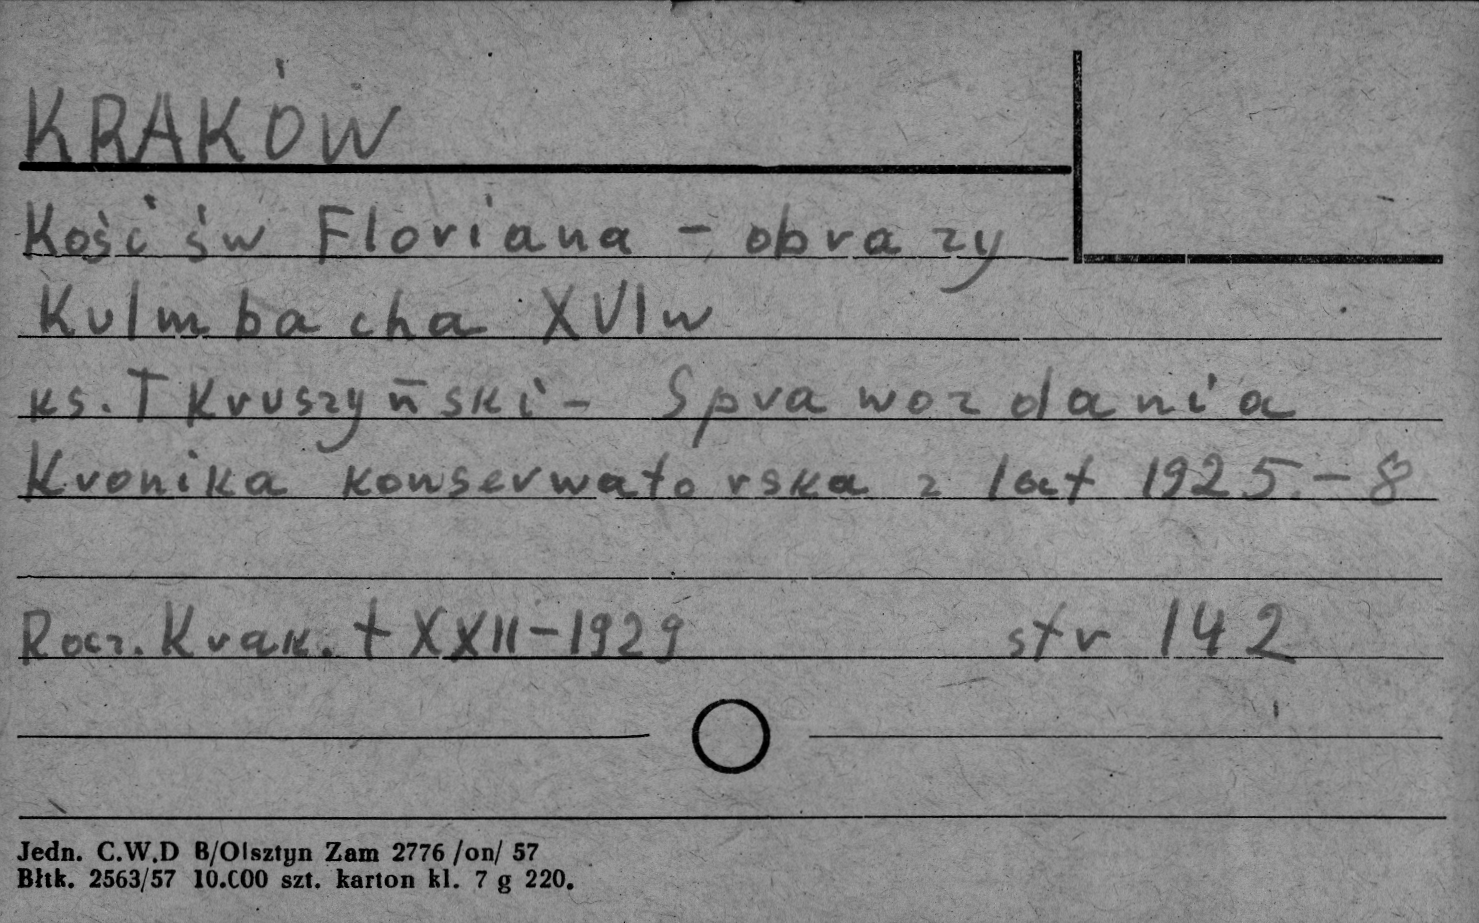 KRAKÓW
Kośc św Floriana - obrazy
Kulmbacha XVI w
ks. T Kruszyński - Sprawozdania
Kronika konserwatorska z lat 1925 - 8
Rocz. Krak. t XXII - 1929 str 142
Jedn. C.W.D B/Olsztyn Zam 2776 /on/ 57
Błtk. 2563/57 10.000 szt. karton kl. 7 g 220.